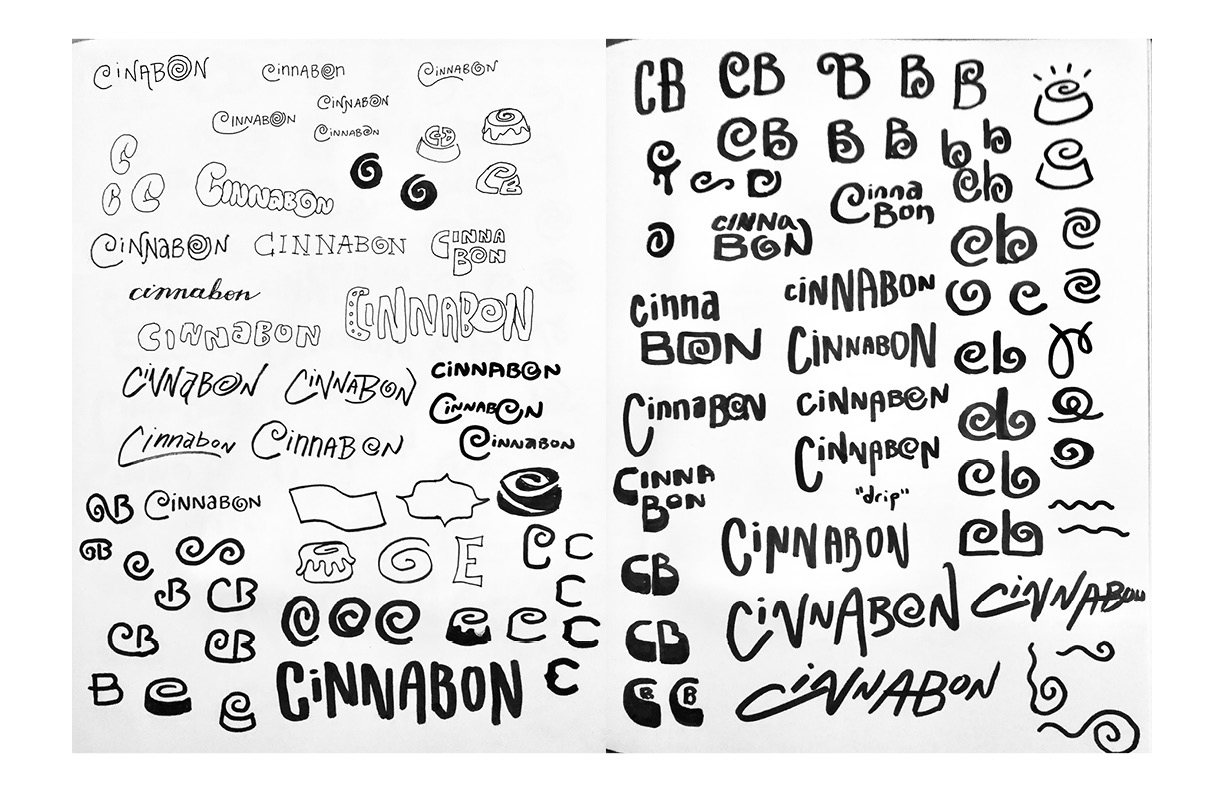 CiNABON CinnABon CinnABON
CiNNABON
CinnABON CinnABon
CB
C
C C CinnaBon CB
CiNNABON CINNABON CINNA
BON
cinnabon CiNNABON
CINNaBON
CiNNaBON CiNNABON CiNNABON
CinnABON
Cinnabon CinnABON CinnABON
CB CinnABON
CB C E C C
CB CB C
C C C C C
CB CB
B CiNNABON C
CB CB B B B
CB B B b b
C cb
Cinna
Bon
CINNA
BON
cb
cinna
BON
CiNNABON
C
CiNNABON cb
CinnaBON CiNNABON cb
CiNNABON cb
CINNA
BON
"drip"
CiNNABON cb
CB
CiNNABON CiNNABON
CB
CiNNABON
CB CB